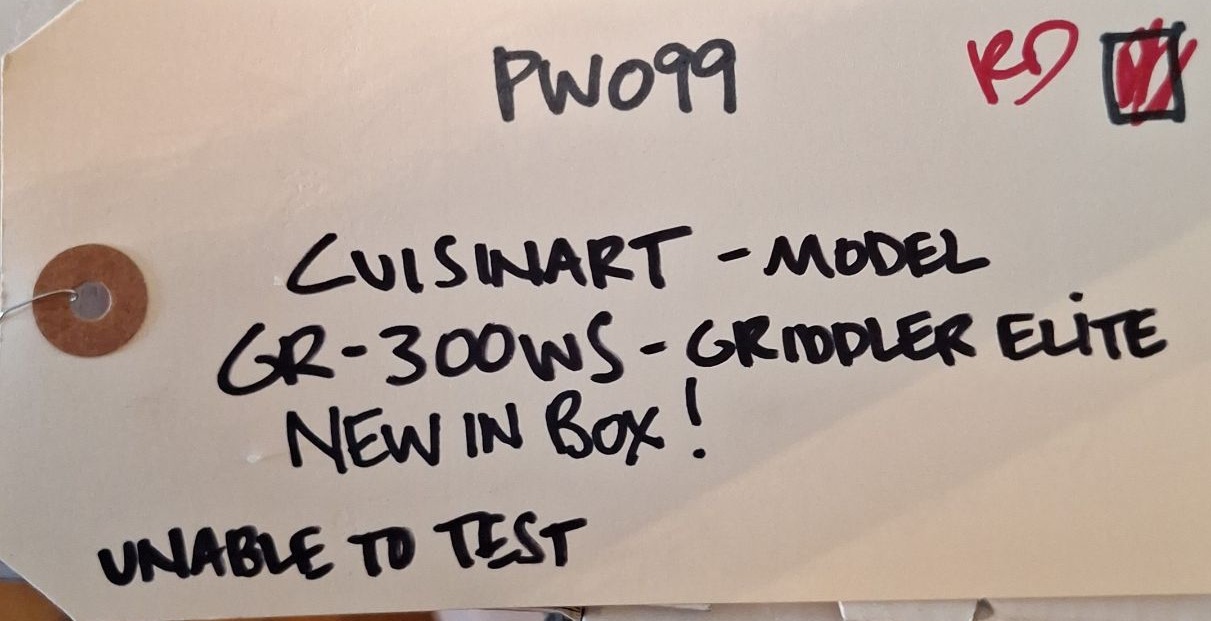 PW099 RD
CUISINART - MODEL
GR-300WS - GRIDDLER ELITE
NEW IN BOX!
UNABLE TO TEST